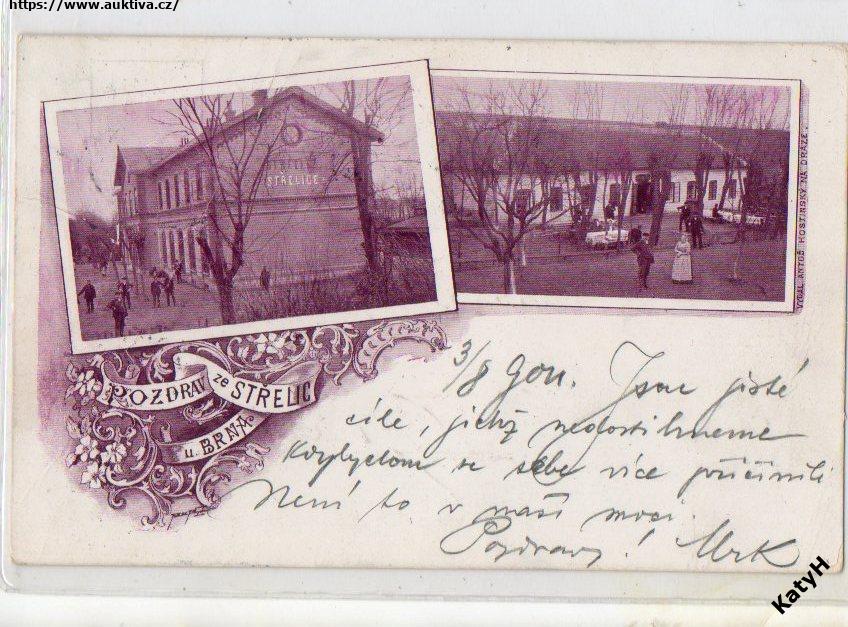 https://www.auktiva.cz/
STŘELICE.
VYDAL ANTOŠ HOSTINSKÝ NA DRÁZE.
POZDRAV ze STŘELIC
u BRNA.
3/8 901. Jsou jisté
cíle, jichž nedostihneme
kdybychom se sebe více přičinili
Není to v naší moci.
Pozdravy!
KatyH